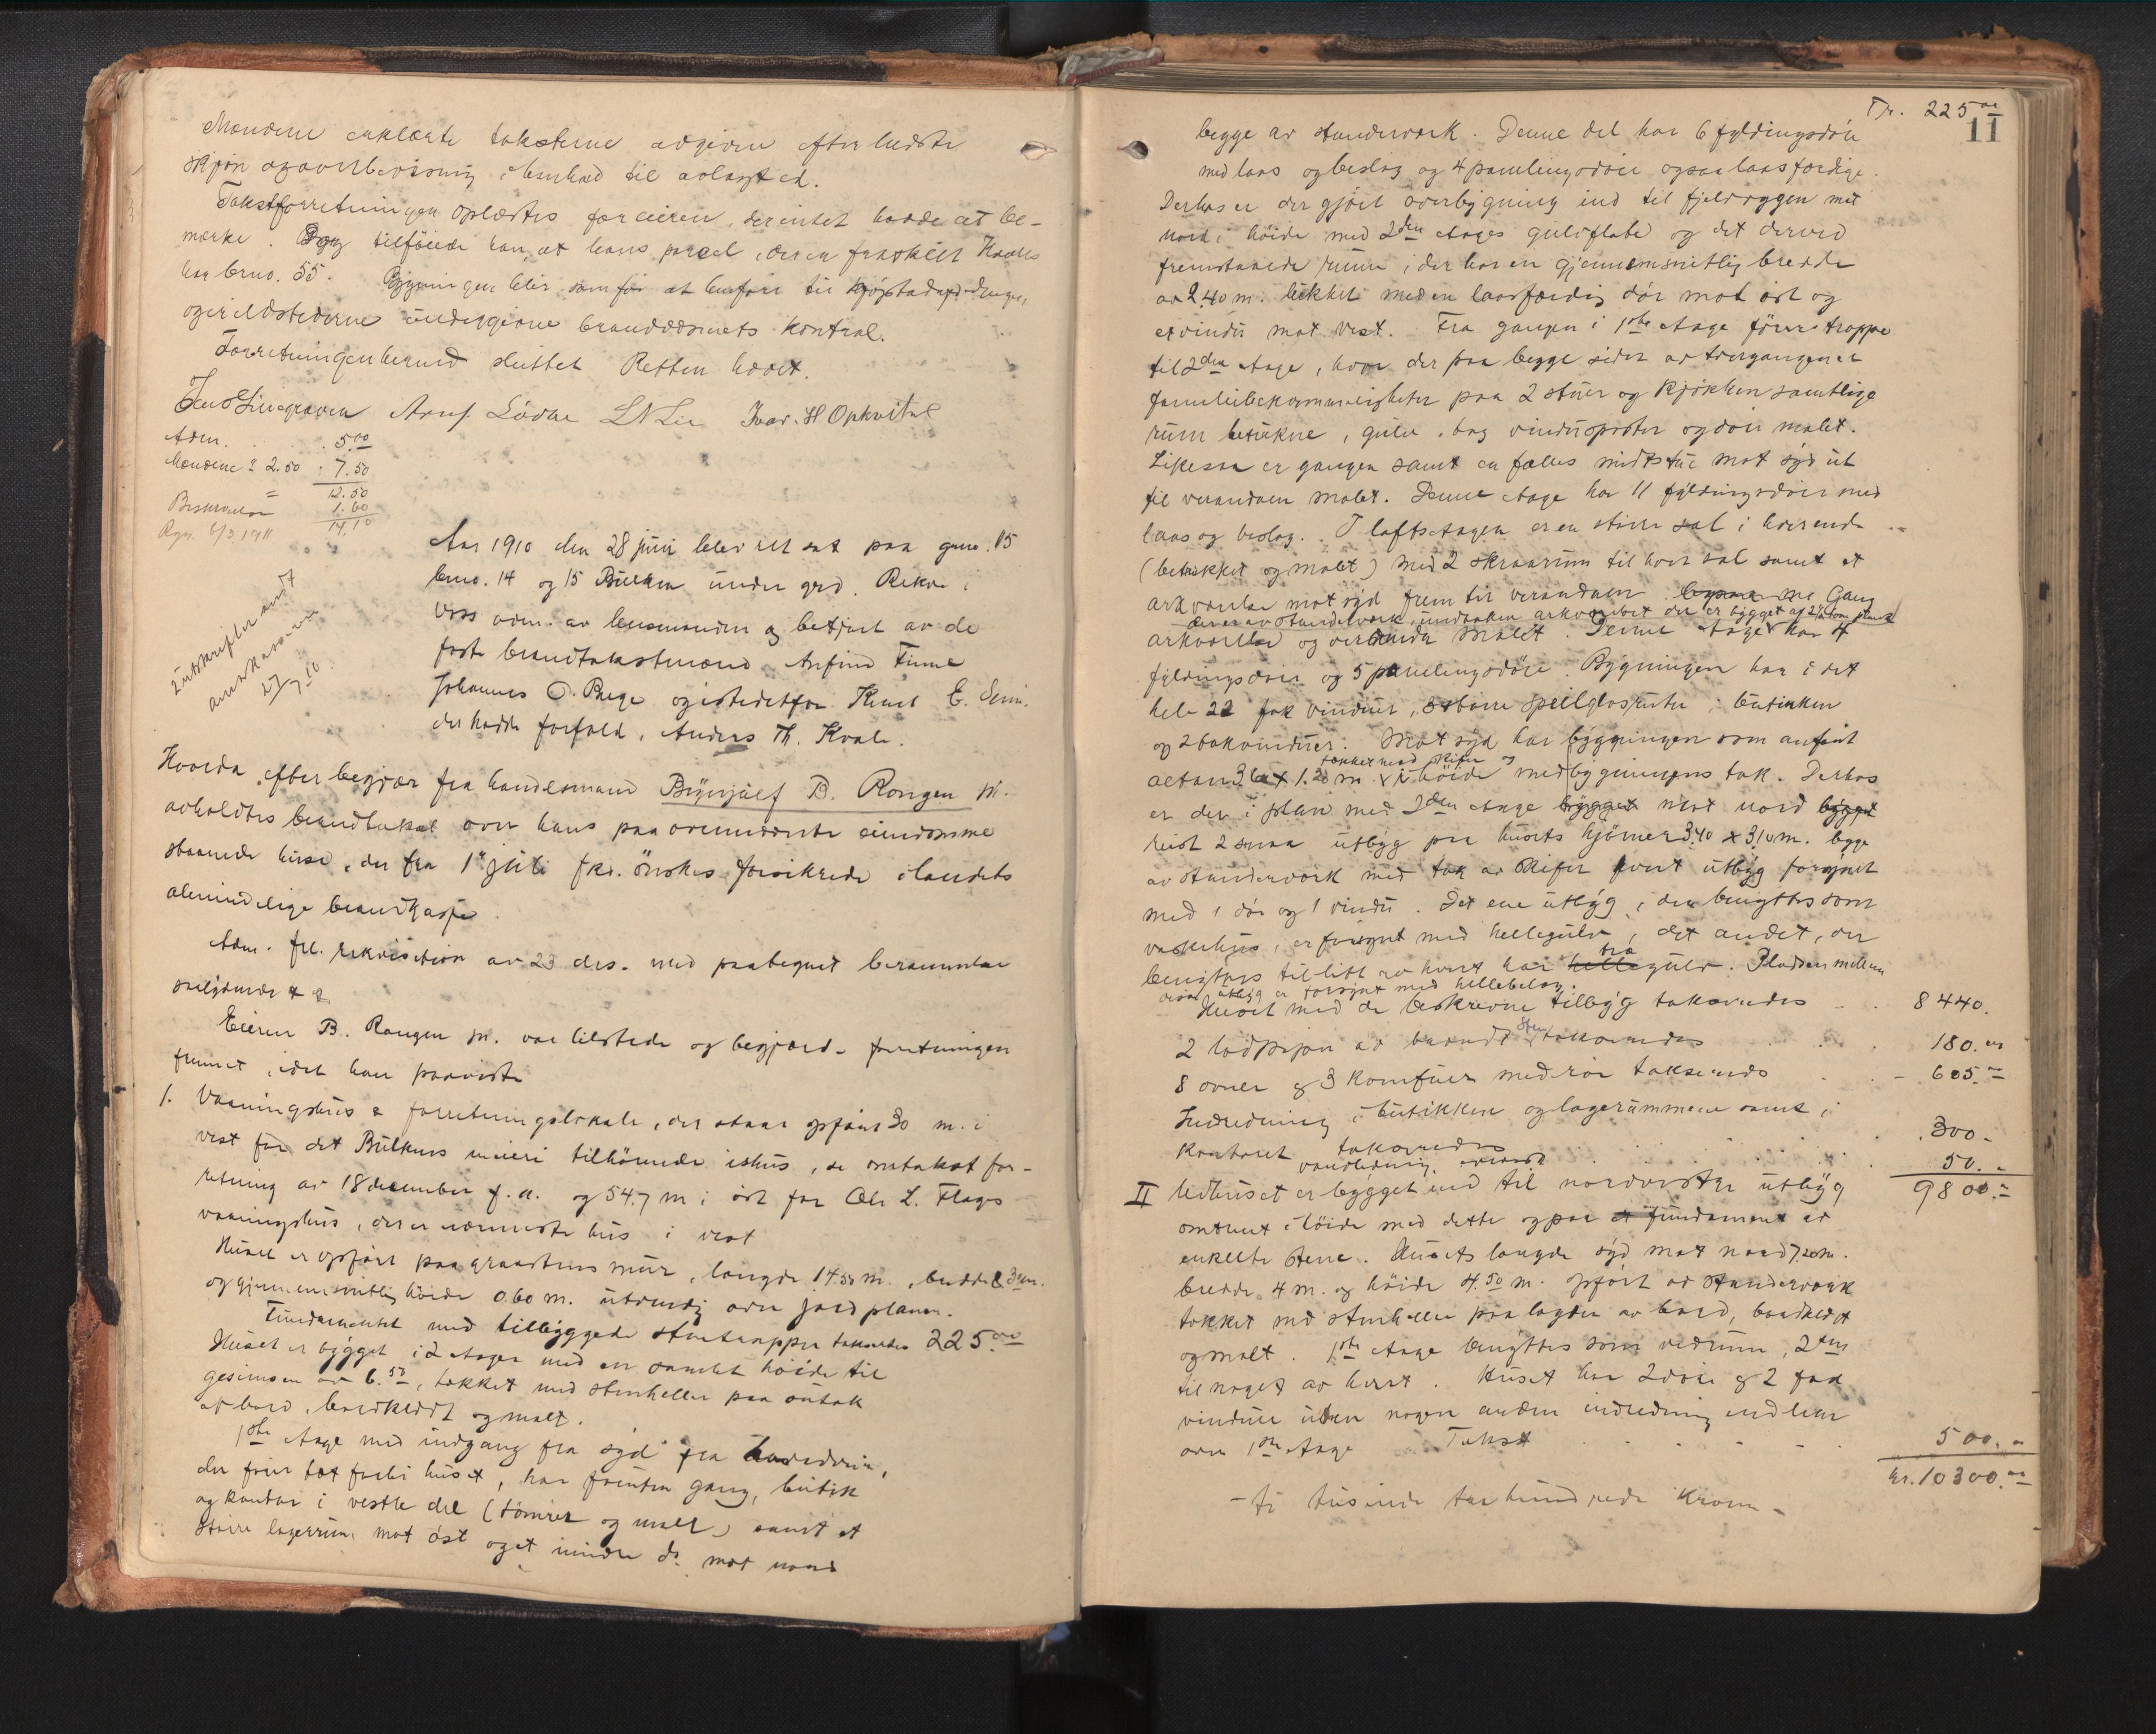 Mændene erklærte taksterne avgivne efter bedste
skjøn og overbevisning i henhold til avlagt ed.
Takstforretningen oplæstes for eieren, der intet hadde at be-
merke. Dog tilføiede han, at hans parcel, der er fraskilt
har brno. 55. Bygningen blir som før at henføre til
og ildstederne undergivne brandvæsenets kontrol.
Forretningen hermed sluttet Retten hævet.
Lødve L N Lie Ivar H Opkvitne
Adm. 5.00
Mændene à 2.50 7.50
12.50
1.60
14.10
2 utskrifter sendt
27/7 10.
Aar 1910 den 28 juni blev ret sat paa gno. 15
brno. 14 og 15 Bulken under grd. Rekve i
Voss adm. av lensmanden og betjent av de
faste brandtakstmænd Anfind Finne
Johannes O. Berge og istedetfor Knut E.
der hadde forfald, Anders Th. Kvale.
Hvorda efter begjær fra handelsmand Brynjulf B. Rongen jr.
avholdtes brandtakst over hans paa ovennævnte eiendomme
staaende huse, der fra 1ste juli fkr. ønskes forsikrede i landets
almindelige brandkasse.
Adm. frl. rekvisition av 23 ds. med paategnet berammelse
Eieren B. Rongen jr. var tilstede og begjærd forretningen
fremmet, idet han paaviste
1. Vaaningshus & forretningslokale, der staar opført 30 m. i
vest for det Bulkens meieri tilhørende ishus, se omtakst for-
retning av 18 december f. a. og 54.7 m i øst for Ole L. Flages
vaaningshus, der er nærmeste hus i vest
Huset er opført paa graastens mur, længde 14.50 m., bredde
og gjennemsnitlig høide 0.60 m. utvendig over jordplanen.
Fundamentet med tilbyggede stentrapper takseredes 225.00
Huset er bygget i 2 etager med en samlet høide til
gesimsen av 6.50, tækket med stenheller paa
av bord, bordklædt og malt.
1ste etage med indgang fra syd fra
der fører tæt forbi huset, har foruten gang, butik
og kontor i vestle del (tømrer og malt) samt et
større lagerrum mot øst og et mindre do mot nord
Tr. 225.00
11
begge av standerverk. Denne del har 6 fyldingsdøre
med laas og beslag og 4 panelingsdøre ogsaa laasfærdige.
Derhos er der gjort overbygning ind til fjeldvæggen mot
nord i høide med 2den etages gulvflate og det derved
fremstaaede rum, der har en gjennemsnitlig bredde
av 2.40 m. lukket med en laasfærdig dør mot øst og
et vindu mot vest. Fra gangen i 1ste etage fører trappe
til 2den etage, hvor der paa begge sider av tvergangen er
familiebekvemmeligheter paa 2 stuer og kjøkken samtlige
rum betrukne, gulv, tag vinduspaster og døre malet.
Likesaa er gangen samt en fælles midtstue mot syd ut
til verandaen malet. Denne etage har 11 fyldingsdøre med
laas og beslag. I loftsetagen er en større sal i hver ende
(betrukket og malet) med 2 skraarum til hver sal samt et
arkværelse mot syd frem til verandaen. Gang
der er av standerverk, undtaken arkværelset der er bygget av 2½ tom plank
arkværelse og veranda malet. Denne etage har 4
fyldingsdøre og 5 panelingsdøre. Bygningen har i det
hele 22 fak vinduer, 3 større speilglasruter i butikken
og 2 takvinduer. Mot syd har bygningen som anført
tækket med skifer og
altan 3.60 x 1.20 m. i høide med bygningens tak. Derhos
er der i plan med 2den etage bygget mot nord bygget
reist 2 smaa utbyg paa husets hjørner 3.40 x 3.10 m. begge
av standerverk med tak av skifer hvert utbyg forsynet
med 1 dør og 1 vindu. Det ene utbyg, der benyttes som
vaskehus, er forsynt med hellegulv, det andet, der
benyttes til litt av hvert har helle træ gulv. Pladsen mellem
disse utbyg er forsynt med hellebelæg.
Huset med de beskrevne tilbyg takseredes 8440.
2 lodpiper av brændt sten takseredes 180.00
8 ovner og 3 komfurer med rør takseredes 605.00
Indredning i butikken og lagerummene samt i
kontoret takseredes 300.-
vandledning 50.-
9800.-
II Uthuset er bygget ind til nordvestre utbyg
omtrent i høide med dette og paa et fundament av
enkelte stene. Husets længde syd mot nord 7.20 m.
bredde 4 m. og høide 4.50 m. opført av standerverk
tækket med stenheller paa lægter av bord, bordklædt
og malt. 1ste etage benyttes som vedrum, 2den
til noget av hvert. Huset har 2 døre og 2 fak
vinduer uten nogen anden indredning end
over 1ste etage Takst 500.-
kr. 10300.00
- Ti tusinde tre hundrede kroner -